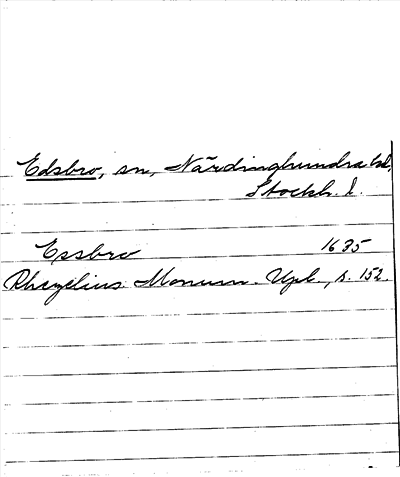 Edsbro, sn, Närdinghundra hd,
Stockh. l.
Essbro 1635
Rhezelius Monum. Upl., s. 152.